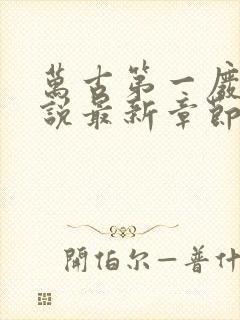 萬古第一廢
說最新章節
開伯尔—普什